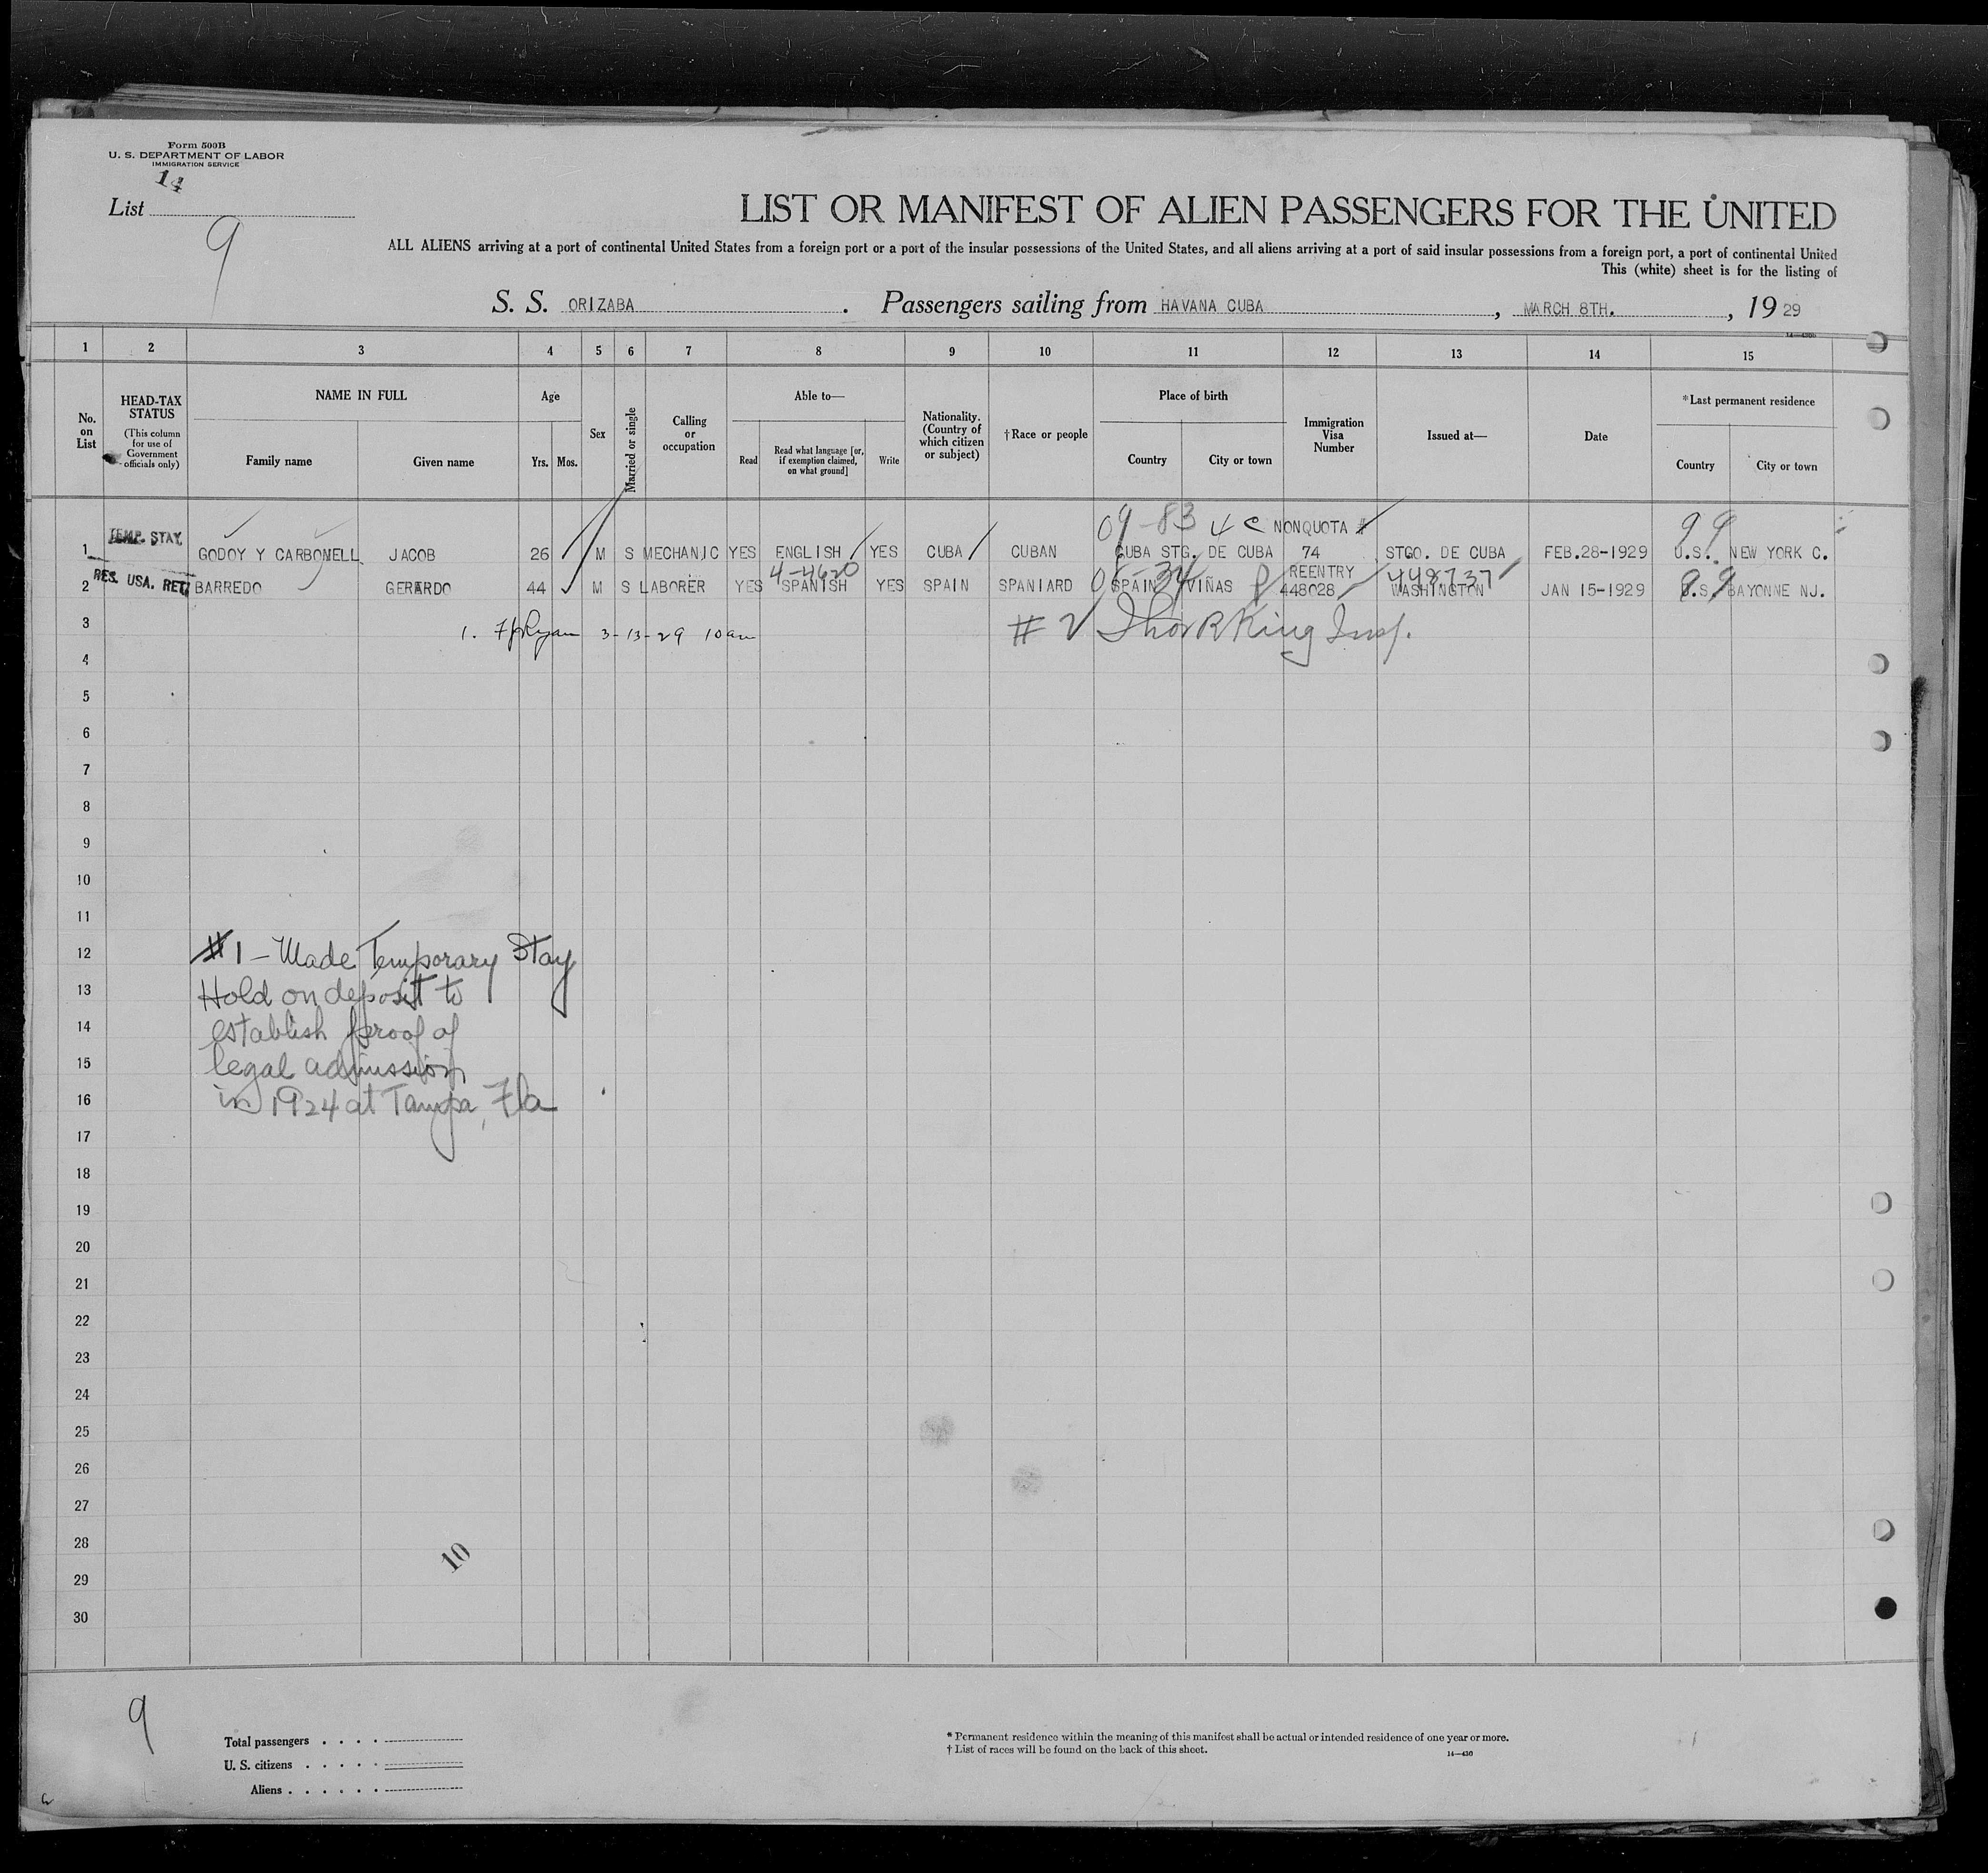 Form 500B
U. S. DEPARTMENT OF LABOR
IMMIGRATION SERVICE
14
List
9
LIST OR MANIFEST OF ALIEN PASSENGERS FOR THE UNITED
ALL ALIENS arriving at a port of continental United States from a foreign port or a port of the insular possessions of the United States, and all aliens arriving at a port of said insular possessions from a foreign port, a port of continental United
This (white) sheet is for the listing of
S. S. ORIZABA. Passengers sailing from HAVANA CUBA, MARCH 8TH., 19 29
1 2 3 4 5 6 7 8 9 10 11 12 13 14 15
No. on List
HEAD-TAX STATUS
(This column for use of Government officials only)
NAME IN FULL
Family name Given name
Age
Yrs. Mos.
Sex
Married or single
Calling or occupation
Able to—
Read
Read what language [or, if exemption claimed, on what ground]
Write
Nationality. (Country of which citizen or subject)
†Race or people
Place of birth
Country City or town
Immigration Visa Number
Issued at—
Date
*Last permanent residence
Country City or town
09-83 4 C NONQUOTA # 99
TEMP. STAY.
1 GODOY Y CARBONELL JACOB 26 M S MECHANIC YES ENGLISH YES CUBA CUBAN CUBA STG. DE CUBA 74 STGO. DE CUBA FEB.28-1929 U.S. NEW YORK C.
4-4620 REENTRY 448737
RES. USA. RET.
2 BARREDO GERARDO 44 M S LABORER YES SPANISH YES SPAIN SPANIARD SPAIN VIÑAS 448028 WASHINGTON JAN 15-1929 U.S. BAYONNE NJ.
3 1. Ryan 3-13-29 10am # 2 King Insp.
4
5
6
7
8
9
10
11
12 #1 - Made Temporary Stay
13 Hold on deposit to
14 establish proof of
15 legal admission
16 in 1924 at Tampa, Fla
17
18
19
20
21
22
23
24
25
26
27
28
10
29
30
9
Total passengers . . . .
U. S. citizens . . . . .
Aliens . . . . . .
* Permanent residence within the meaning of this manifest shall be actual or intended residence of one year or more.
† List of races will be found on the back of this sheet.
14—430